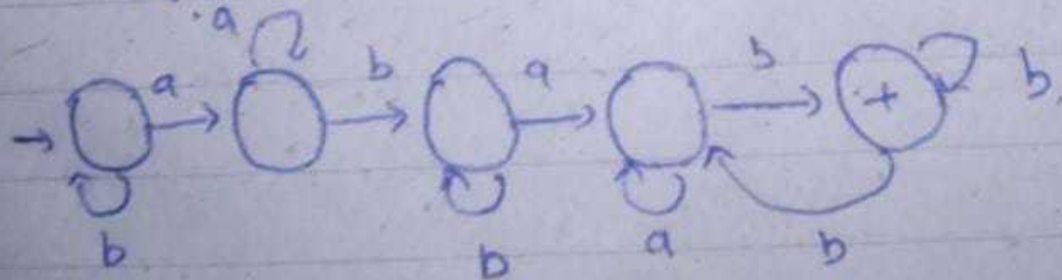 a
a b a b + b
b b a b